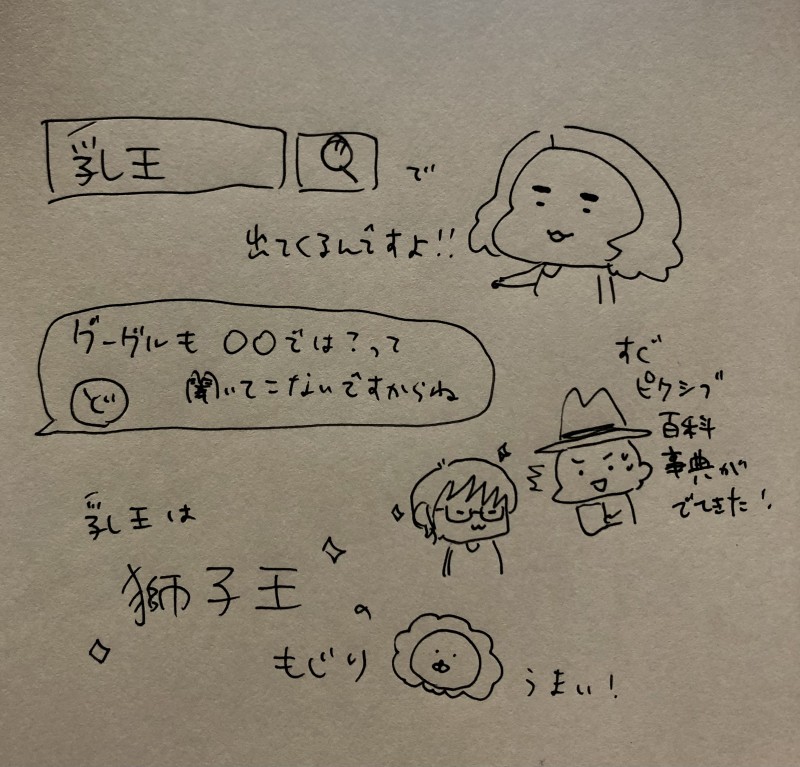 乳王 で
出てくるんですよ!!
グーグルも 〇〇では?って
ど 聞いてこないですからね
すぐ
ピクシブ
百科
事典が
でてきた!
乳王は
獅子王の
もじり
うまい!